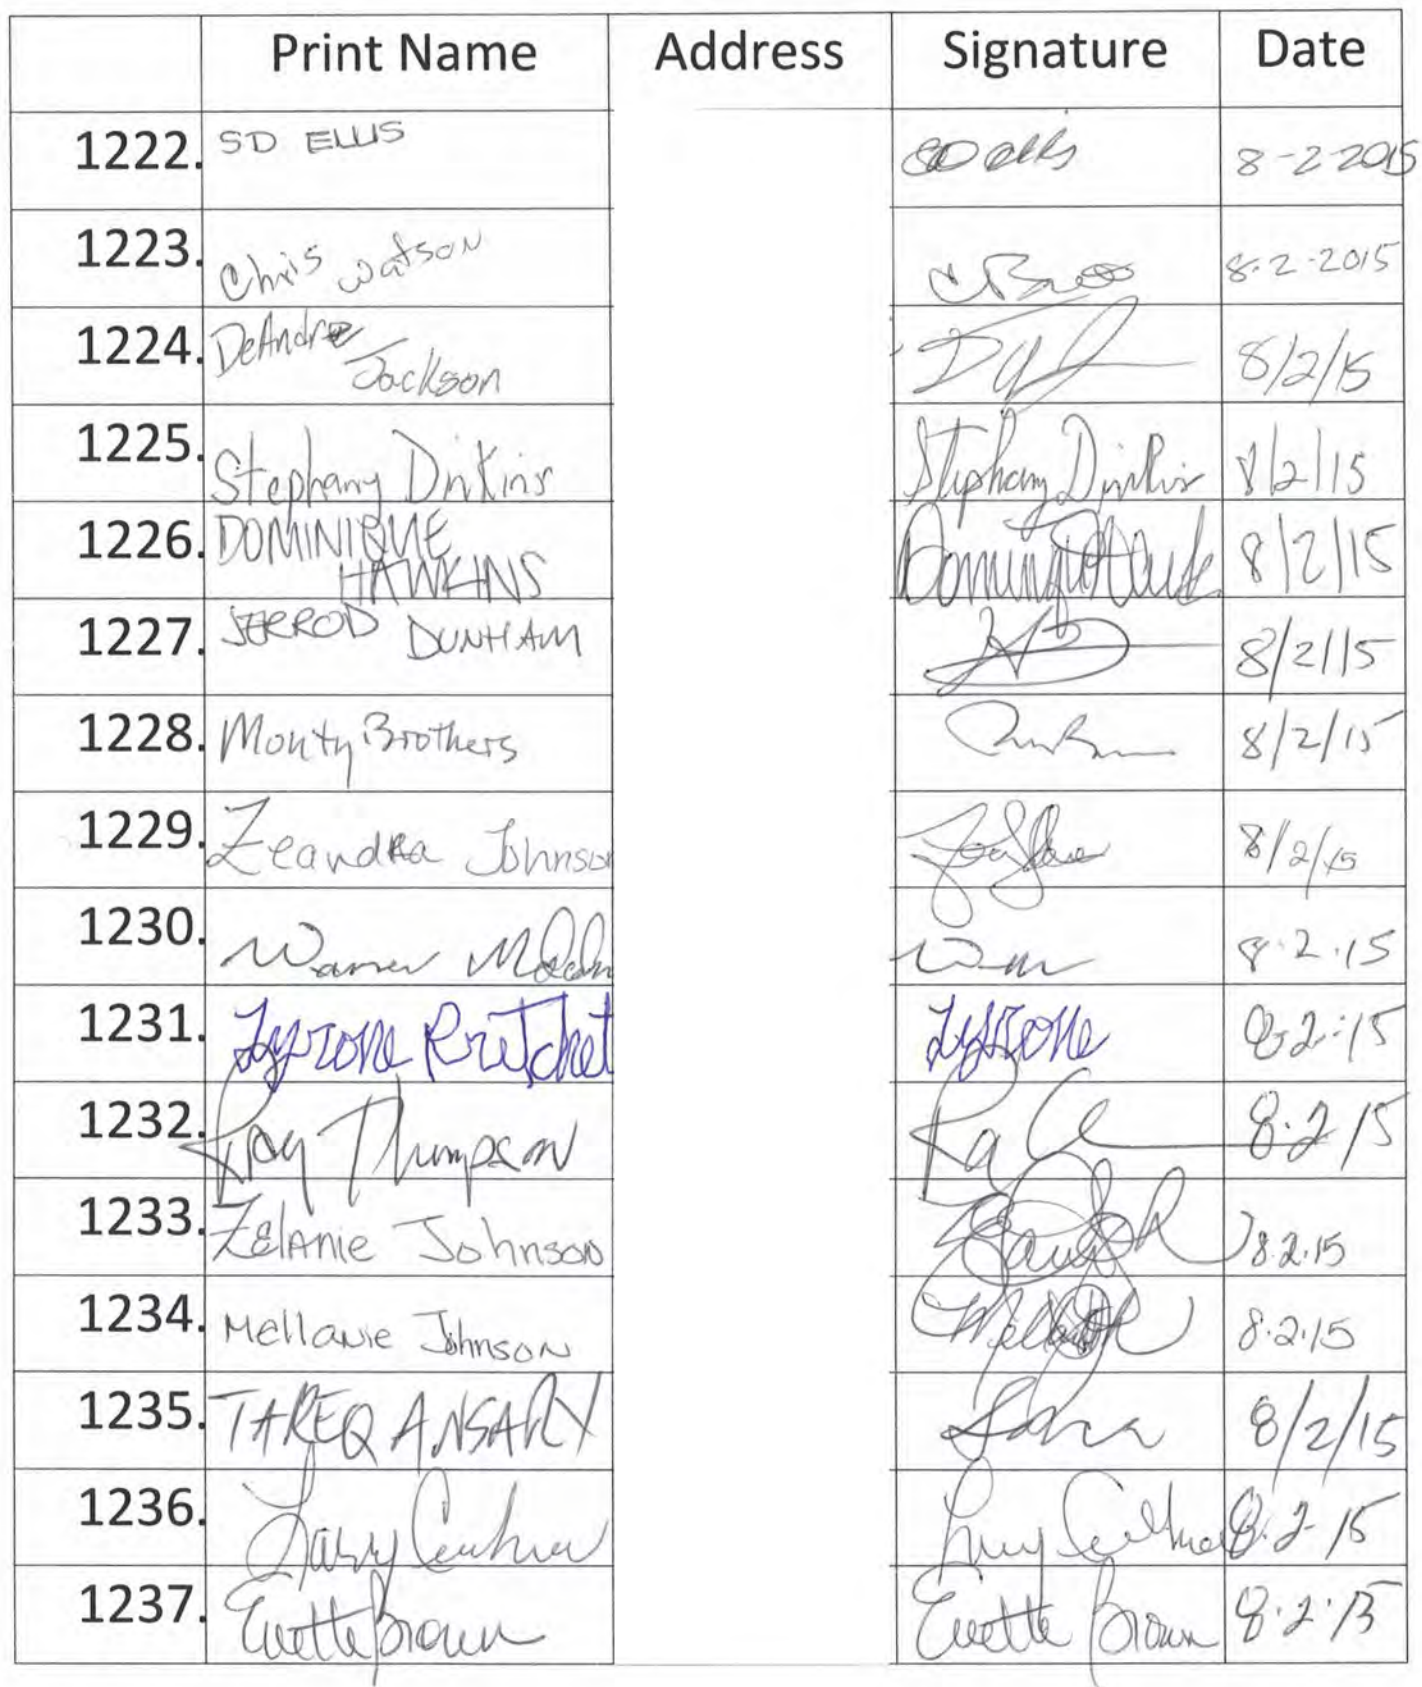 Print Name Address Signature Date
1222. SD ELLIS SD Ellis 8-2-2015
1223. Chris Watson 8.2-2015
1224. DeAndre Jackson 8/2/15
1225. Stephany Dinkins Stephany Dinkins 8/2/15
1226. DOMINIQUE HAWKINS 8/2/15
1227. JERROD DUNHAM 8/2/15
1228. Monty Brothers 8/2/15
1229. Zeandra Johnson 8/2/15
1230. 8.2.15
1231. Tyrone Pritchet Tyrone 8-2-15
1232. Ray Thompson 8.2/15
1233. Zelanie Johnson 8.2.15
1234. Mellanie Johnson 8.2.15
1235. TAREQ ANSARY 8/2/15
1236. Larry 8.2-15
1237. Evette Brown Evette Brown 8.2.15